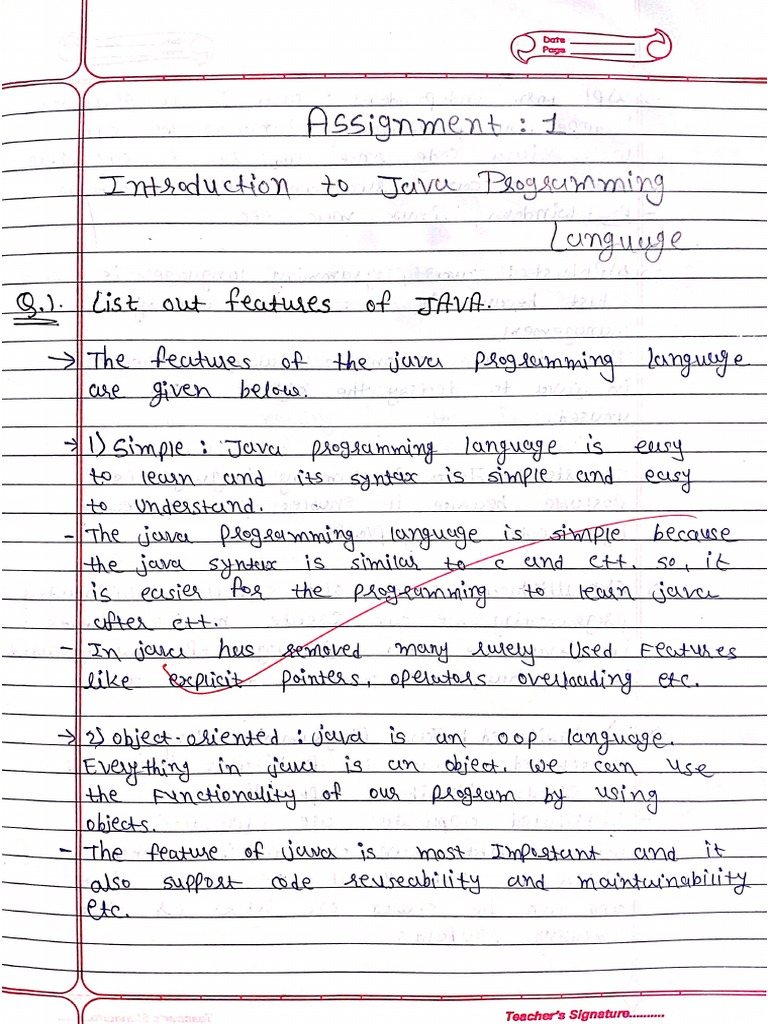 Date
Page
Assignment : 1
Introduction to Java Programming
Language
Q.1. List out features of JAVA.
→ The features of the java programming language
are given below.
→ 1) Simple : Java programming language is easy
to learn and its syntax is simple and easy
to understand.
- The java programming language is simple because
the java syntax is similar to c and c++. so, it
is easier for the programming to learn java
after c++.
- In java has removed many rarely used features
like explicit pointers, operators overloading etc.
→ 2) object-oriented : java is an oop language.
Everything in java is an object. we can use
the functionality of our program by using
objects.
- The feature of java is most important and it
also support code reuseability and maintainability
etc.
Teacher's Signature..........